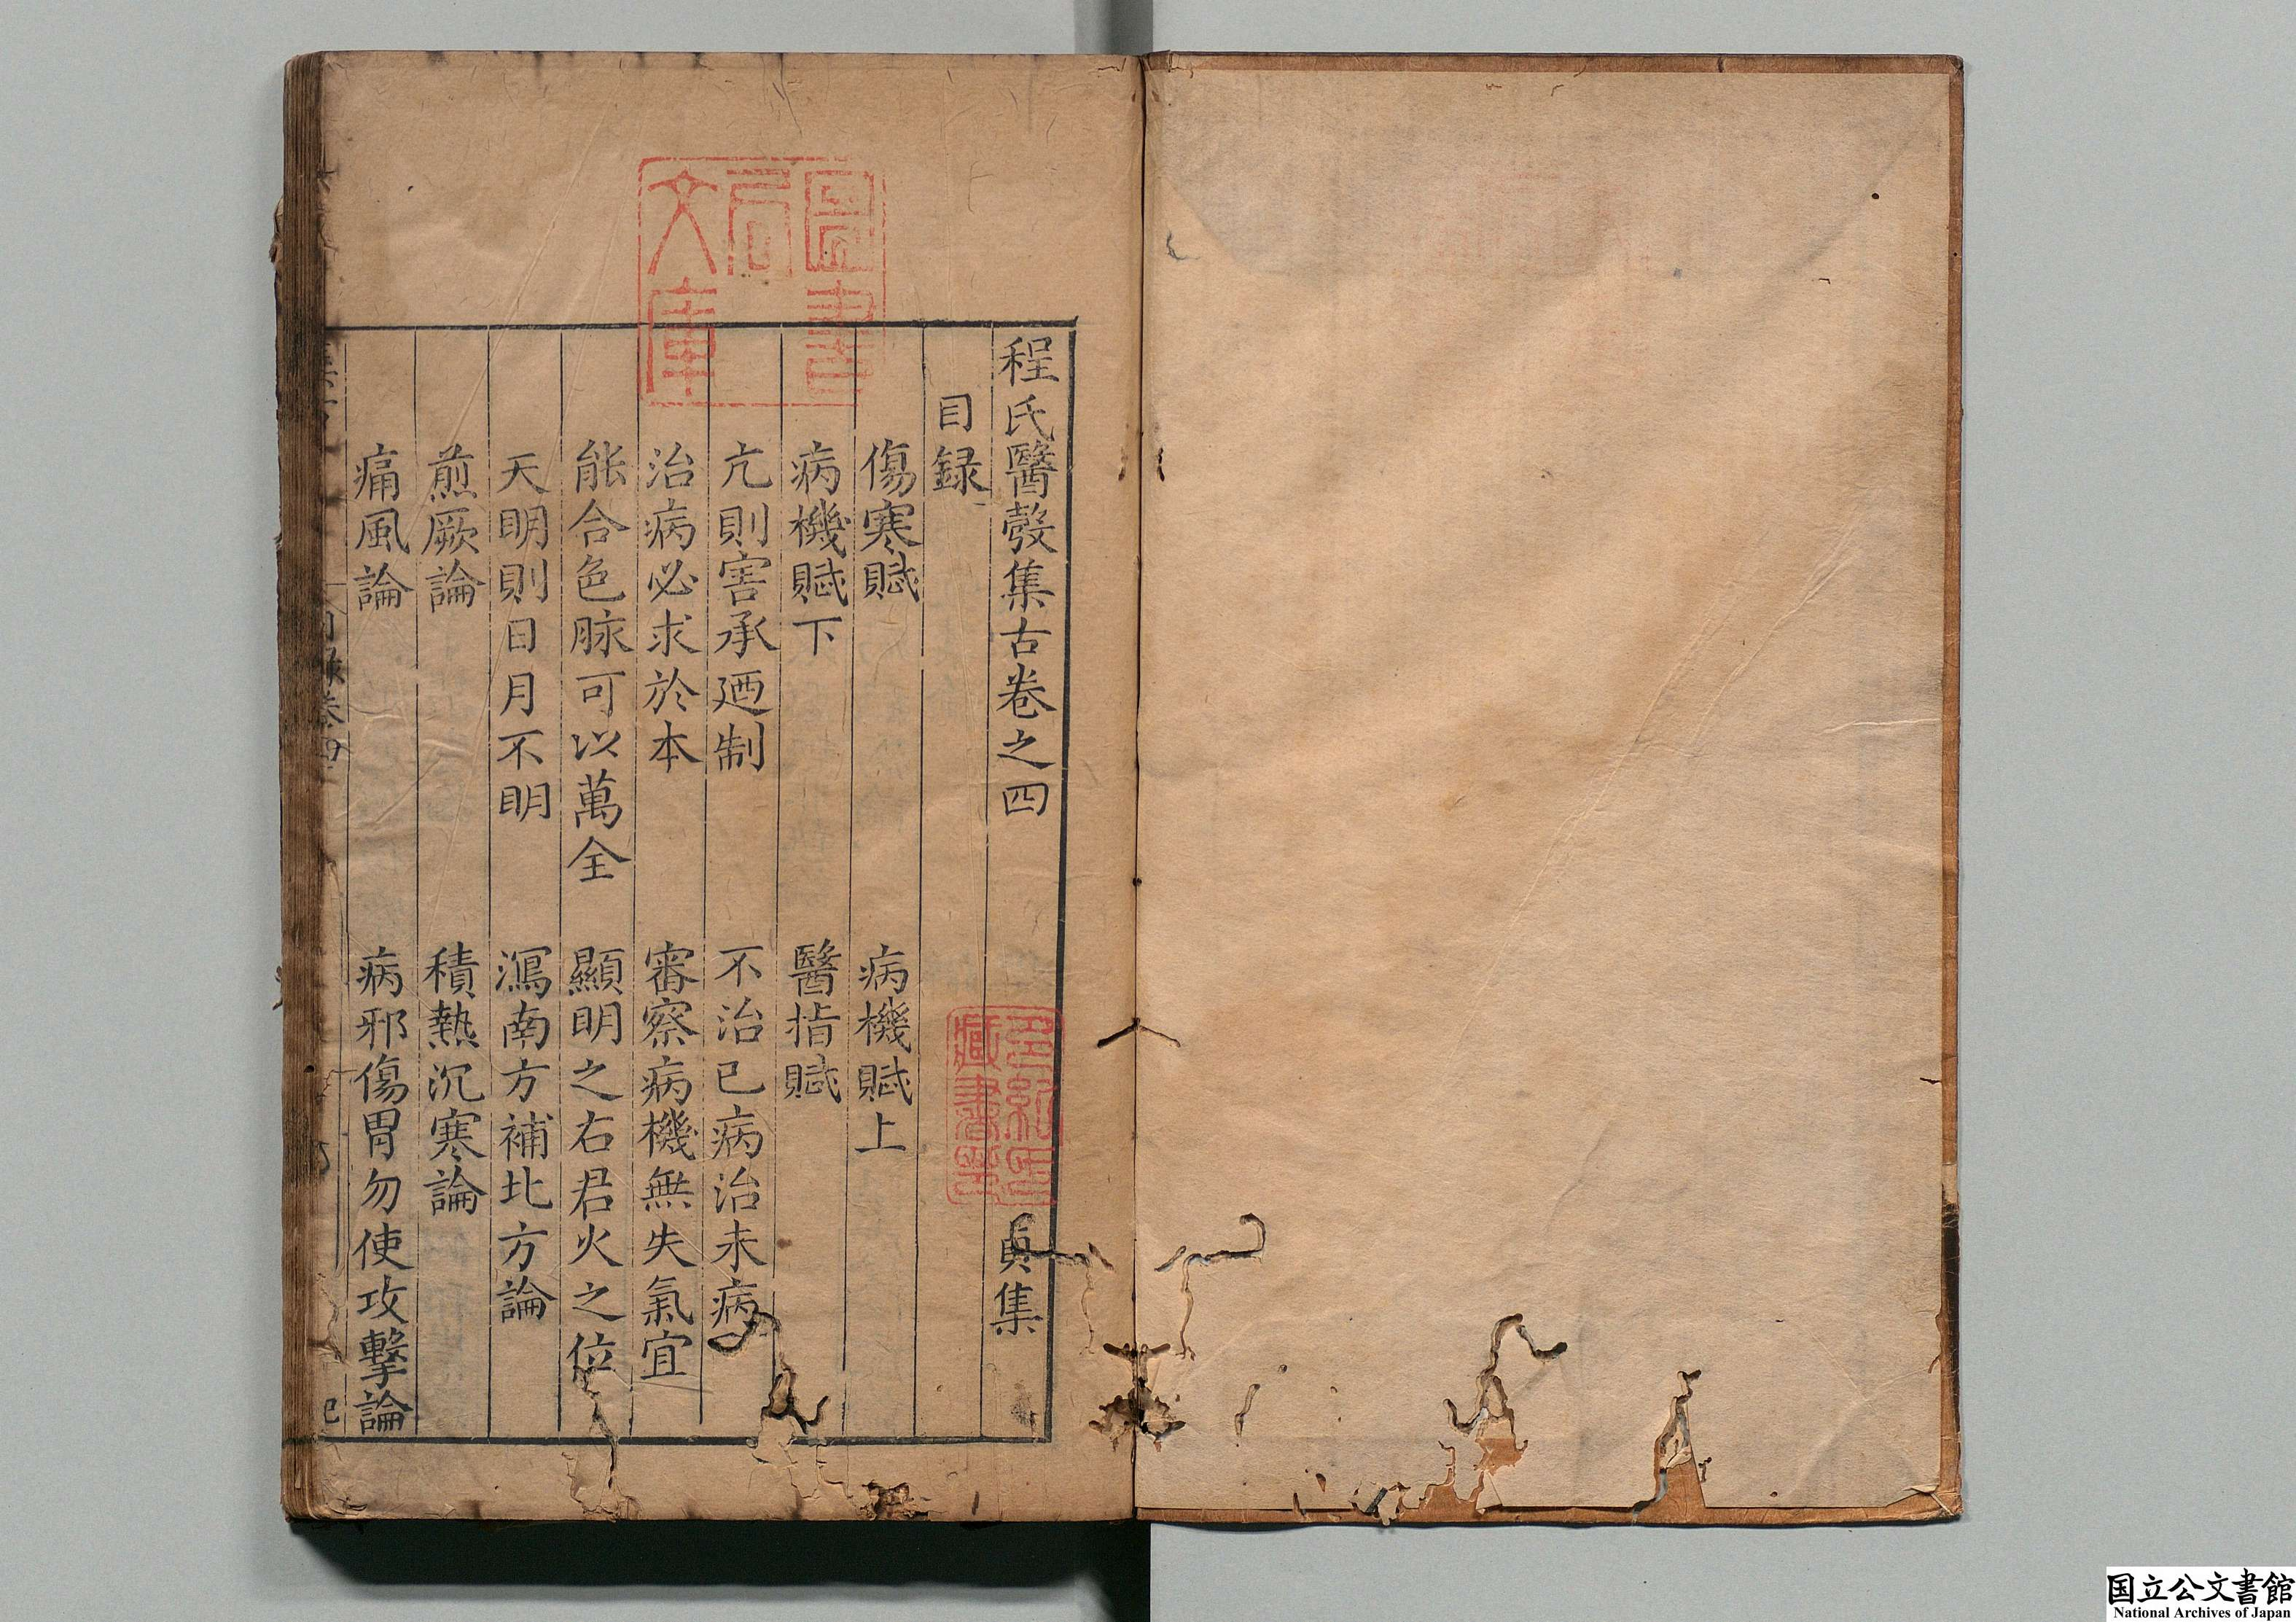 程氏醫彀集古卷之四　貞集
目録
傷寒賦　病機賦上
病機賦下　醫指賦
亢則害承廼制　不治已病治未病
治病必求於本　審察病機無失氣宜
能合色脉可以萬全　顯明之右君火之位
天明則日月不明　瀉南方補北方論
煎厥論　積熱沉寒論
痛風論　病邪傷胃勿使攻擊論
目録卷四
圖書
局
文庫
藏書
国立公文書館
National Archives of Japan